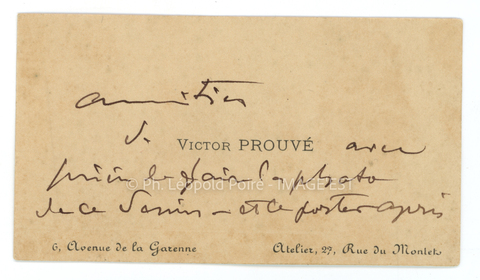 amitiés
de VICTOR PROUVÉ avec
prière de faire la photo
© Ph. Leopold Poiré - IMAGE EST
de ce dessin - et le porter après
6, Avenue de la Garenne Atelier, 27, Rue du Montet